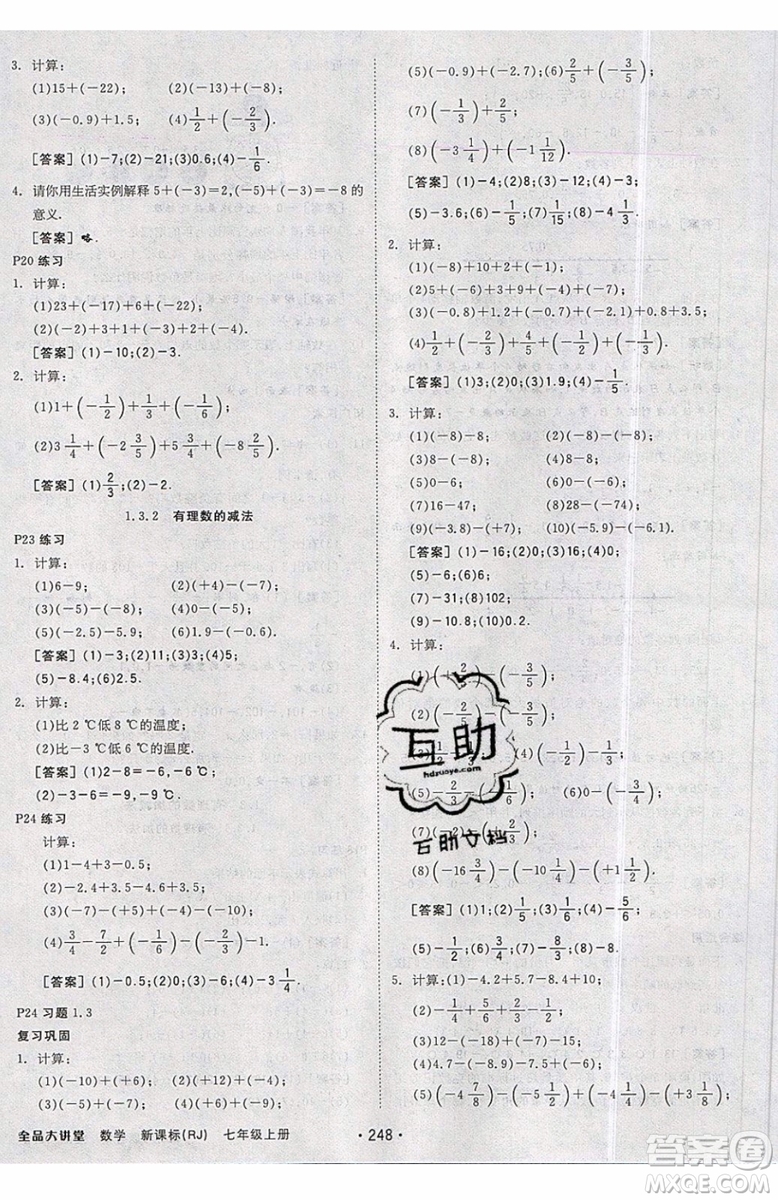 3. 计算:
(1)15+(-22);    (2)(-13)+(-8);
(3)(-0.9)+1.5;    (4)1/2+(-2/3).
[答案] (1)-7;(2)-21;(3)0.6;(4)-1/6.
4. 请你用生活实例解释 5+(-3)=2,(-5)+(-3)=-8的
意义.
[答案] 略.
P20 练习
1. 计算:
(1)23+(-17)+6+(-22);
(2)(-2)+3+1+(-3)+2+(-4).
[答案] (1)-10;(2)-3.
2. 计算:
(1)1+(-1/2)+1/3+(-1/6);
(2)3 1/4+(-2 3/5)+5 3/4+(-8 2/5).
[答案] (1)2/3;(2)-2.
1.3.2 有理数的减法
P23 练习
1. 计算:
(1)6-9;    (2)(+4)-(-7);
(3)(-5)-(-8);    (4)0-(-5);
(5)(-2.5)-5.9;    (6)1.9-(-0.6).
[答案] (1)-3;(2)11;(3)3;(4)5;
(5)-8.4;(6)2.5.
2. 计算:
(1)比 2 ℃低 8 ℃的温度;
(2)比-3 ℃低 6 ℃的温度.
[答案] (1)2-8=-6,-6 ℃;
(2)-3-6=-9,-9 ℃.
P24 练习
计算:
(1)1-4+3-0.5;
(2)-2.4+3.5-4.6+3.5;
(3)(-7)-(+5)+(-4)-(-10);
(4)3/4-7/2+(-1/6)-(-2/3)-1.
[答案] (1)-0.5;(2)0;(3)-6;(4)-3 1/4.
P24 习题 1.3
复习巩固
1. 计算:
(1)(-10)+(+6);    (2)(+12)+(-4);
(3)(-5)+(-7);    (4)(+6)+(-9);
(5)(-0.9)+(-2.7);(6)2/5+(-3/5);
(7)(-1/3)+2/5;
(8)(-3 1/4)+(-1 1/12).
[答案] (1)-4;(2)8;(3)-12;(4)-3;
(5)-3.6;(6)-1/5;(7)1/15;(8)-4 1/3.
2. 计算:
(1)(-8)+10+2+(-1);
(2)5+(-6)+3+9+(-4)+(-7);
(3)(-0.8)+1.2+(-0.7)+(-2.1)+0.8+3.5;
(4)1/2+(-2/3)+4/5+(-1/2)+(-1/3).
[答案] (1)3;(2)0;(3)1.9;(4)-1/5.
3. 计算:
(1)(-8)-8;    (2)(-8)-(-8);
(3)8-(-8);    (4)8-8;
(5)0-6;    (6)0-(-6);
(7)16-47;    (8)28-(-74);
(9)(-3.8)-(+7);    (10)(-5.9)-(-6.1).
[答案] (1)-16;(2)0;(3)16;(4)0;
(5)-6;(6)6;
(7)-31;(8)102;
(9)-10.8;(10)0.2.
4. 计算:
(1)(+2/5)-(-3/5);
(2)(-2/5)-(-3/5);
(4)(-1/2)-1/3;
(5)-2/3-(-1/6);    (6)0-(-3/4);
(7)(-2)-(+2/3);
(8)(-16 3/4)-(-10 1/4)-(+1 1/2).
[答案] (1)1;(2)1/5;(3)1/6;(4)-5/6;
(5)-1/2;(6)3/4;(7)-8/3;(8)-8.
5. 计算:(1)-4.2+5.7-8.4+10;
(2)-1/4+5/6+2/3-1/2;
(3)12-(-18)+(-7)-15;
(4)4.7-(-8.9)-7.5+(-6);
(5)(-4 7/8)-(-5 1/2)+(-4 1/4)-(+3 1/8);
互助
hdzuoye.com
互助文档
全品大讲堂 数学 新课标(RJ) 七年级上册
·248·
作业精灵